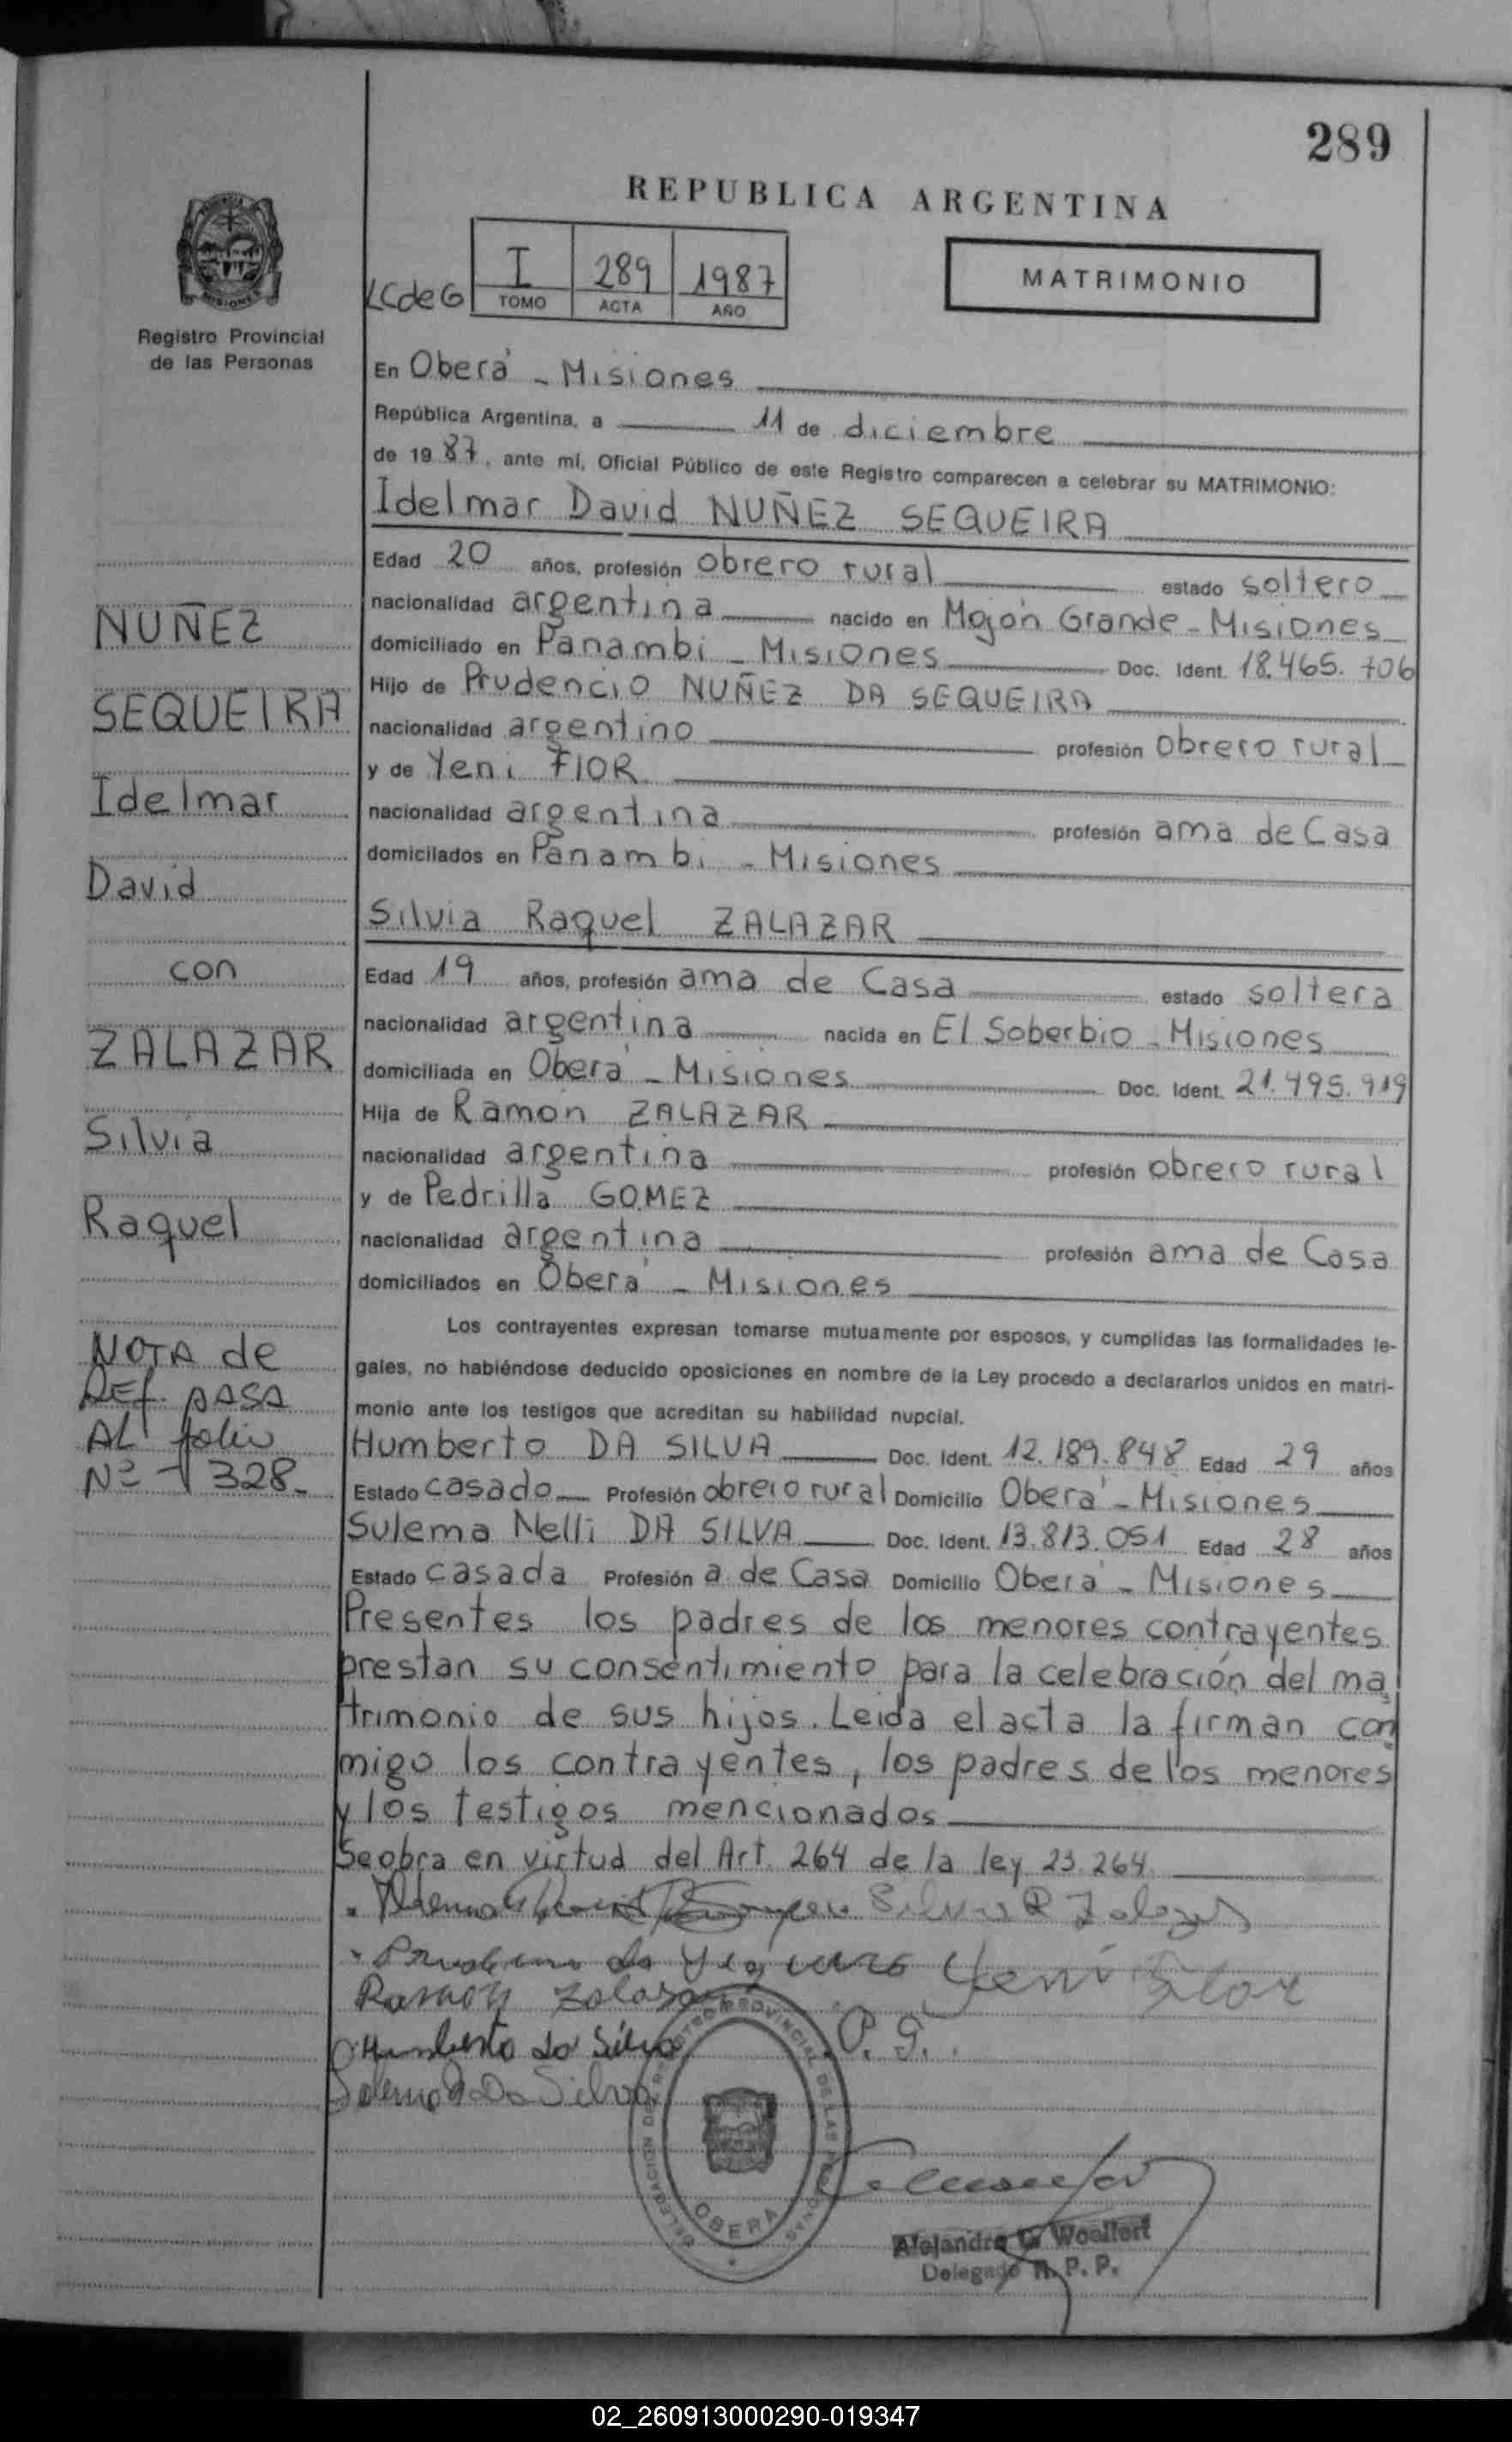 289
REPUBLICA ARGENTINA
MATRIMONIO
LCdeG
I 289 1987
TOMO ACTA AÑO
Registro Provincial
de las Personas
En Oberá - Misiones
República Argentina, a 11 de diciembre
de 1987, ante mí, Oficial Público de este Registro comparecen a celebrar su MATRIMONIO:
Idelmar David NUÑEZ SEQUEIRA
Edad 20 años, profesión obrero rural estado soltero
nacionalidad argentina nacido en Mojón Grande - Misiones
domiciliado en Panambi - Misiones Doc. Ident. 18.465.706
Hijo de Prudencio NUÑEZ DA SEQUEIRA
nacionalidad argentino profesión obrero rural
y de Yeni FIOR
nacionalidad argentina profesión ama de Casa
domicilados en Panambi - Misiones
Silvia Raquel ZALAZAR
Edad 19 años, profesión ama de Casa estado soltera
nacionalidad argentina nacida en El Soberbio - Misiones
domiciliada en Oberá - Misiones Doc. Ident. 21.495.919
Hija de Ramon ZALAZAR
nacionalidad argentina profesión obrero rural
y de Pedrilla GOMEZ
nacionalidad argentina profesión ama de Casa
domiciliados en Oberá - Misiones
Los contrayentes expresan tomarse mutuamente por esposos, y cumplidas las formalidades le-
gales, no habiéndose deducido oposiciones en nombre de la Ley procedo a declararlos unidos en matri-
monio ante los testigos que acreditan su habilidad nupcial.
Humberto DA SILVA Doc. Ident. 12.189.848 Edad 29 años
Estado casado Profesión obrero rural Domicilio Oberá - Misiones
Sulema Nelli DA SILVA Doc. Ident. 13.813.051 Edad 28 años
Estado casada Profesión a. de Casa Domicilio Oberá - Misiones
Presentes los padres de los menores contrayentes
prestan su consentimiento para la celebración del ma
trimonio de sus hijos. Leída el acta la firman con
migo los contrayentes, los padres de los menores
y los testigos mencionados
Se obra en virtud del Art. 264 de la ley 23.264
NUÑEZ
SEQUEIRA
Idelmar
David
con
ZALAZAR
Silvia
Raquel
NOTA de
REf. PASA
AL folio
Nº 328.
Silvia R Zalazar
Yeni Fior
Ramon Zalazar
P. G.
Humberto da Silva
Da Silva
DELEGACION DEL REGISTRO PROVINCIAL DE LAS PERSONAS
OBERA
Alejandro G. Woelfert
Delegado R. P. P.
02_260913000290-019347